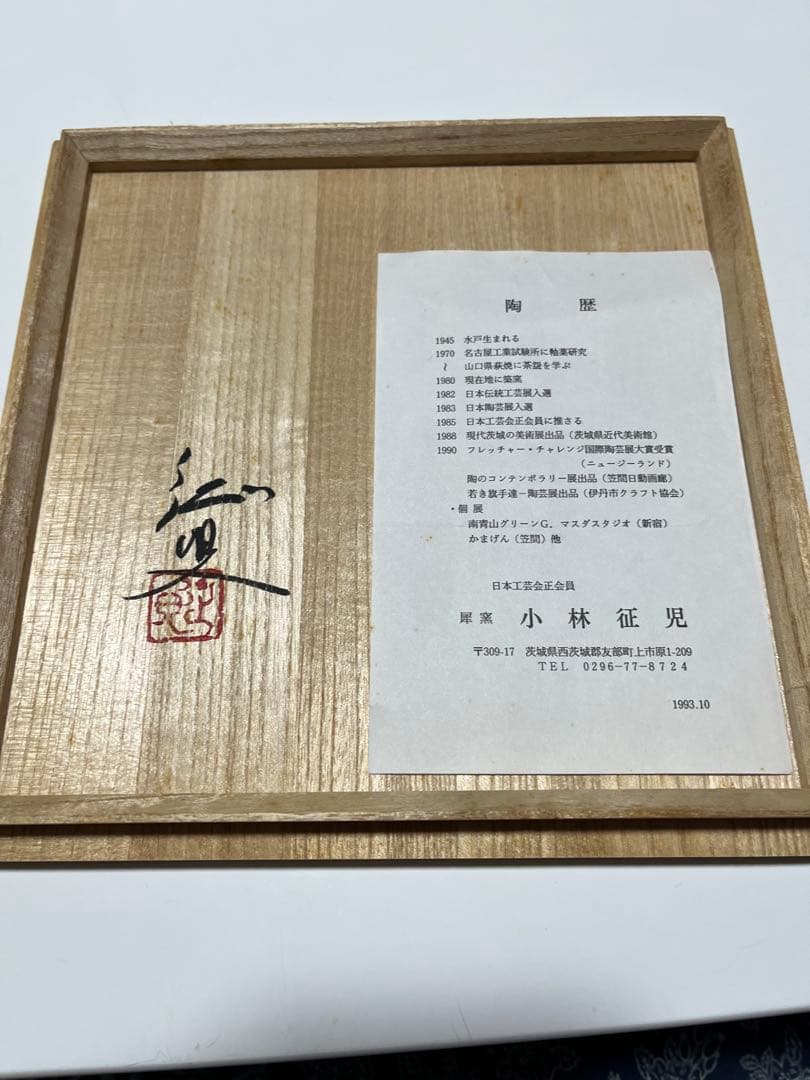 征児
陶 歴
1945 水戸生まれる
1970 名古屋工業試験所に釉薬研究
～ 山口県萩焼に茶盌を学ぶ
1980 現在地に築窯
1982 日本伝統工芸展入選
1983 日本陶芸展入選
1985 日本工芸会正会員に推さる
1988 現代茨城の美術展出品（茨城県近代美術館）
1990 フレッチャー・チャレンジ国際陶芸展大賞受賞
（ニュージーランド）
陶のコンテンポラリー展出品（笠間日動画廊）
若き旗手達－陶芸展出品（伊丹市クラフト協会）
・個 展
南青山グリーンG．マスダスタジオ（新宿）
かまげん（笠間）他
日本工芸会正会員
犀 窯 小 林 征 児
〒309-17 茨城県西茨城郡友部町上市原1-209
TEL 0296-77-8724
1993.10